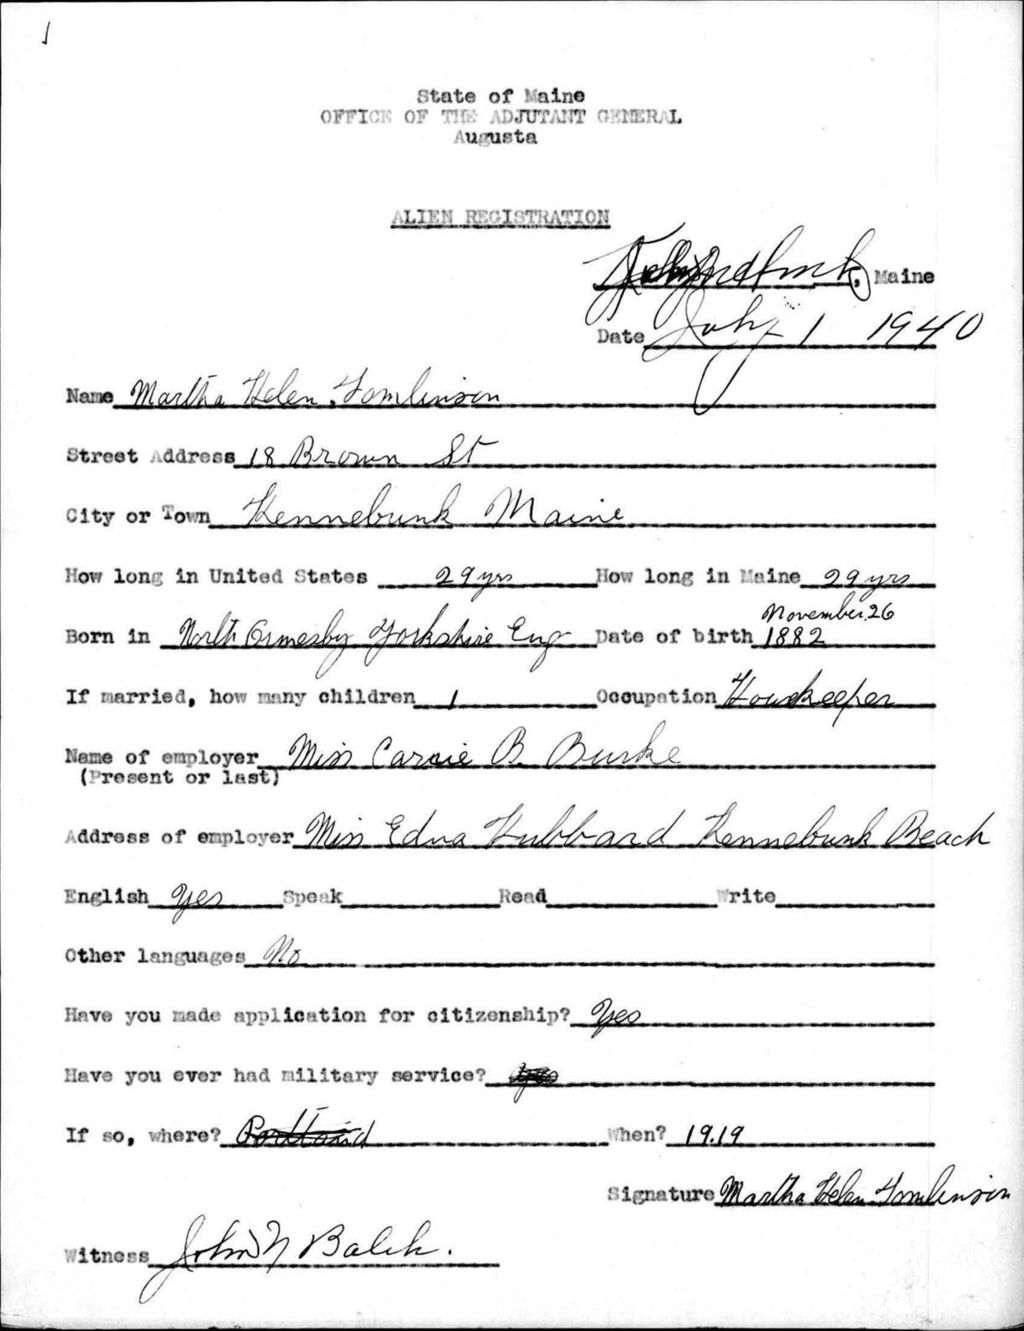 State of Maine
OFFICE OF THE ADJUTANT GENERAL
Augusta
ALIEN REGISTRATION
, Maine
Date July 1 1940
Name Martha Helen Tomlinson
Street Address 18 Brown St
City or Town Kennebunk Maine
How long in United States 29 yrs How long in Maine 29 yrs
November 26
Born in North Ormesby Yorkshire Eng Date of birth 1882
If married, how many children 1 Occupation Housekeeper
Name of employer Miss Carrie B. Burke
(Present or last)
Address of employer Miss Edna Hubbard Kennebunk Beach
English Yes Speak Read Write
Other languages No
Have you made application for citizenship? Yes
Have you ever had military service? Yes
If so, where? Portland When? 1919
Signature Martha Helen Tomlinson
Witness John N Balch.